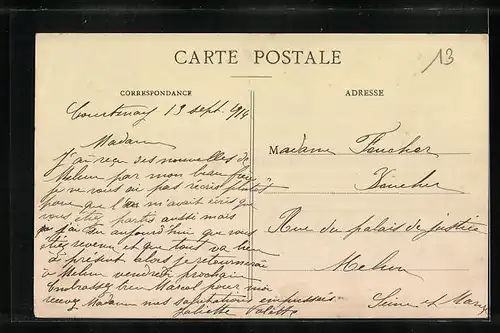 CARTE POSTALE
13
CORRESPONDANCE
ADRESSE
Courtenay 13 sept. 914
Madame
J'ai reçu des nouvelles de
Melun par mon beau frère
je ne vous ai pas écrit plutôt
parce que l'on m'avait écrit que
vous étiez partis aussi mais
j'ai su aujourd'hui que vous
étiez revenu et que tout va bien
à présent alors je retournerai
à Melun vendredi prochain
Embrassez bien Marcel pour moi
recevez Madame mes salutations empressées
Juliette
Madame Foucher
Boucher
Rue du palais de justice
Melun
Seine et Marne